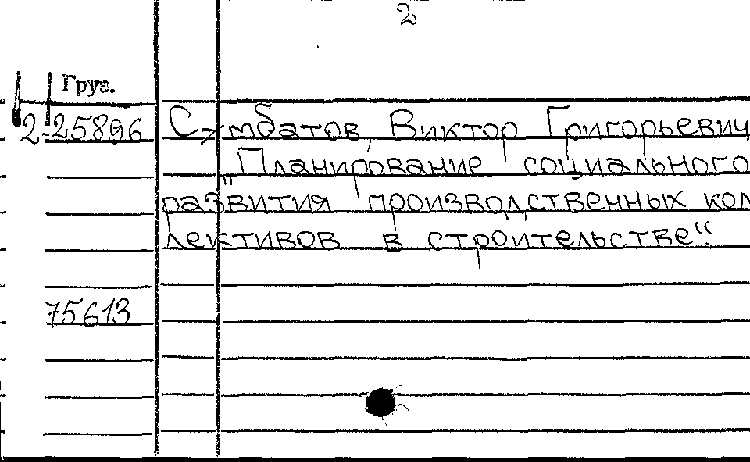 2
Груз.
2-25896 Сумбатов, Виктор Григорьевич
"Планирование социального
развития производственных кол
лективов в строительстве"
75613